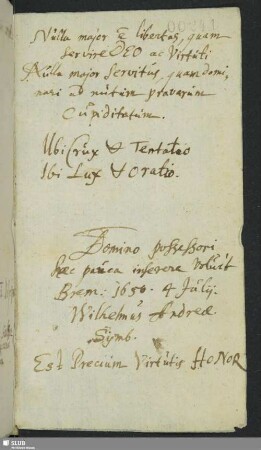 Nulla major ē libertas, quam
servire DEO ac Virtuti
Nulla major servitus, quam domi,
nari ad nutum pravarum
Cupiditatum.
Ubi Crux & Tentatio
Ibi Lux & Oratio.
Domino possessori
hæc pauca inserere voluit
Brem: 1650. 4 Julij.
Wilhelmus Andreæ.
Symb.
Est Precium Virtutis HONOR
SLUB